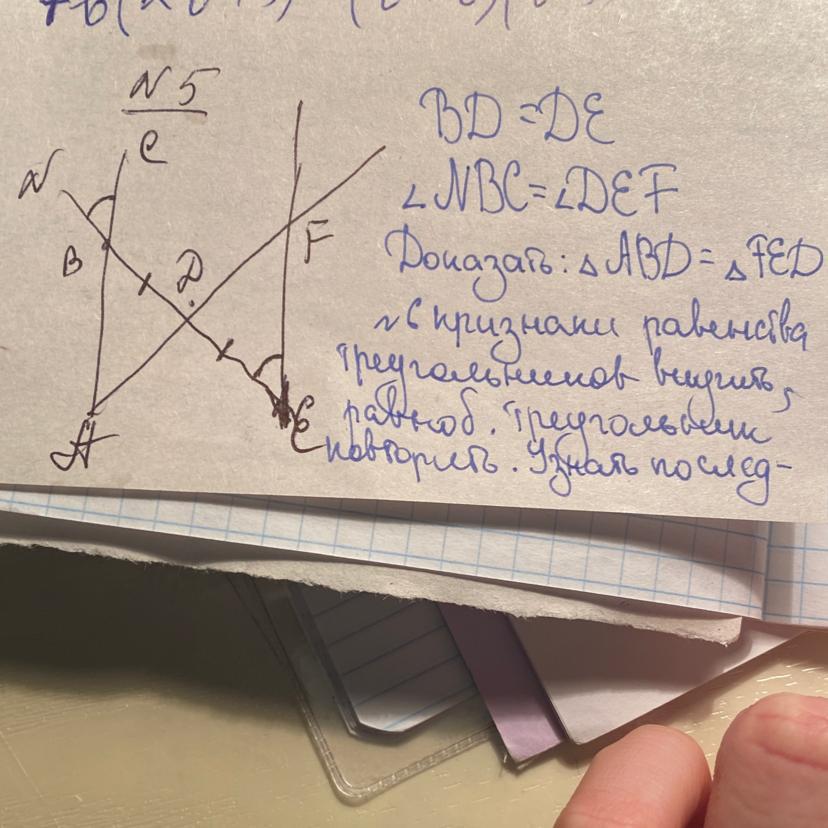 N 5
N
C
B
D
F
A
E
BD = DE
∠NBC = ∠DEF
Доказать: △ABD = △FED
признаки равенства
треугольников выучить,
равноб. треугольник
повторить. Узнать послед-